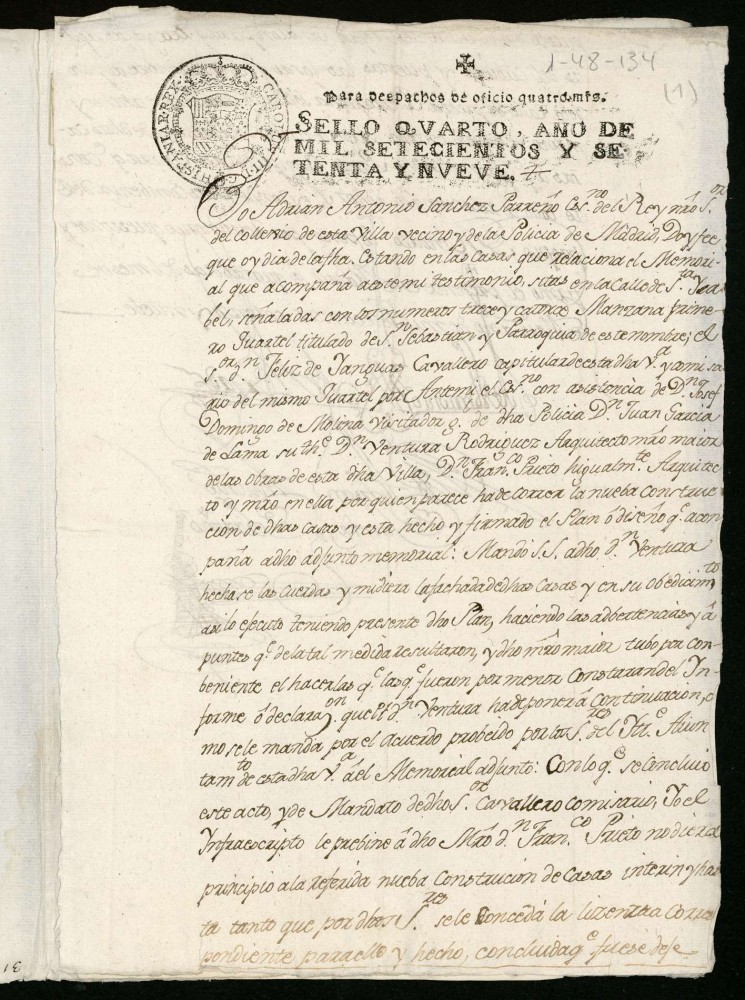 1-48-134
(1)
Para despachos de oficio quatro mrs.
SELLO QVARTO, AÑO DE
MIL SETECIENTOS Y SE-
TENTA Y NVEVE.
HISPANIAR. REX CAROL. III. D. G.
Yo Adrian Antonio Sanchez Parreño Es.no del Rey nrõ S.or
del collexio de esta Villa vecino y de la Policia de Madrid, Doy fee
que oy dia de la fha. Estando en las Casas que relaciona el Memori-
al que acompaña a este mi testimonio, sitas en la Calle de S.ta Ysa
bel, señaladas con los numeros trece y catorce Manzana prime-
ro Quartel titulado de S.n Sebastian y Parroquia de este nombre; el
S.or D.n Feliz de Yanguas Cavallero capitular de esta dha V.a y comisa
rio del mismo Quartel por Antemi el Es.no con asistencia de D.n Josef
Domingo de Molina Visitador g. de dha Policia D.n Juan Garcia
de Lama su the. D.n Ventura Rodriguez Arquitecto mrõ maior
de las Obras de esta dha Villa, D.n Fran.co Prieto higualm.te Arquitec-
to y mrõ en ella por quien parece ha de correr la nueba construc-
cion de dhas casas y esta hecho y firmado el Plan ô diseño q.e acom
paña adho adjunto memorial: Mandó S.S. adho d.n Ventura
hechase las cuerdas y midiera la fachada de dhas Casas y en su obedecim.to
asi lo ejecuto teniendo presente dho Plan, haciendo las adbertencias y a
puntes q.e de la tal medida resultaron, y dho mrõ maior tubo por con-
beniente el hacerlas q.e las q.e fueron por menor Constaran del In-
forme ô declaraz.on que el d.n Ventura ha de poner â Continuacion, co
mo se le manda por el acuerdo probeido por los S.res del Ylt.e Aiun
tam.to de esta dha V.a â el Memorial adjunto: Con lo q.e se Concluio
este acto, y de Mandato de dho S.or Cavallero comisario, Yo el
Infraescripto le prebine â dho Mrõ d.n Fran.co Prieto no diera
principio a la referida nueba Construcion de Casas interin y has
ta tanto que por dhos S.res se le Conceda la lizenzia Corres
pondiente para ello y hecho, concluida q.e fuese dese